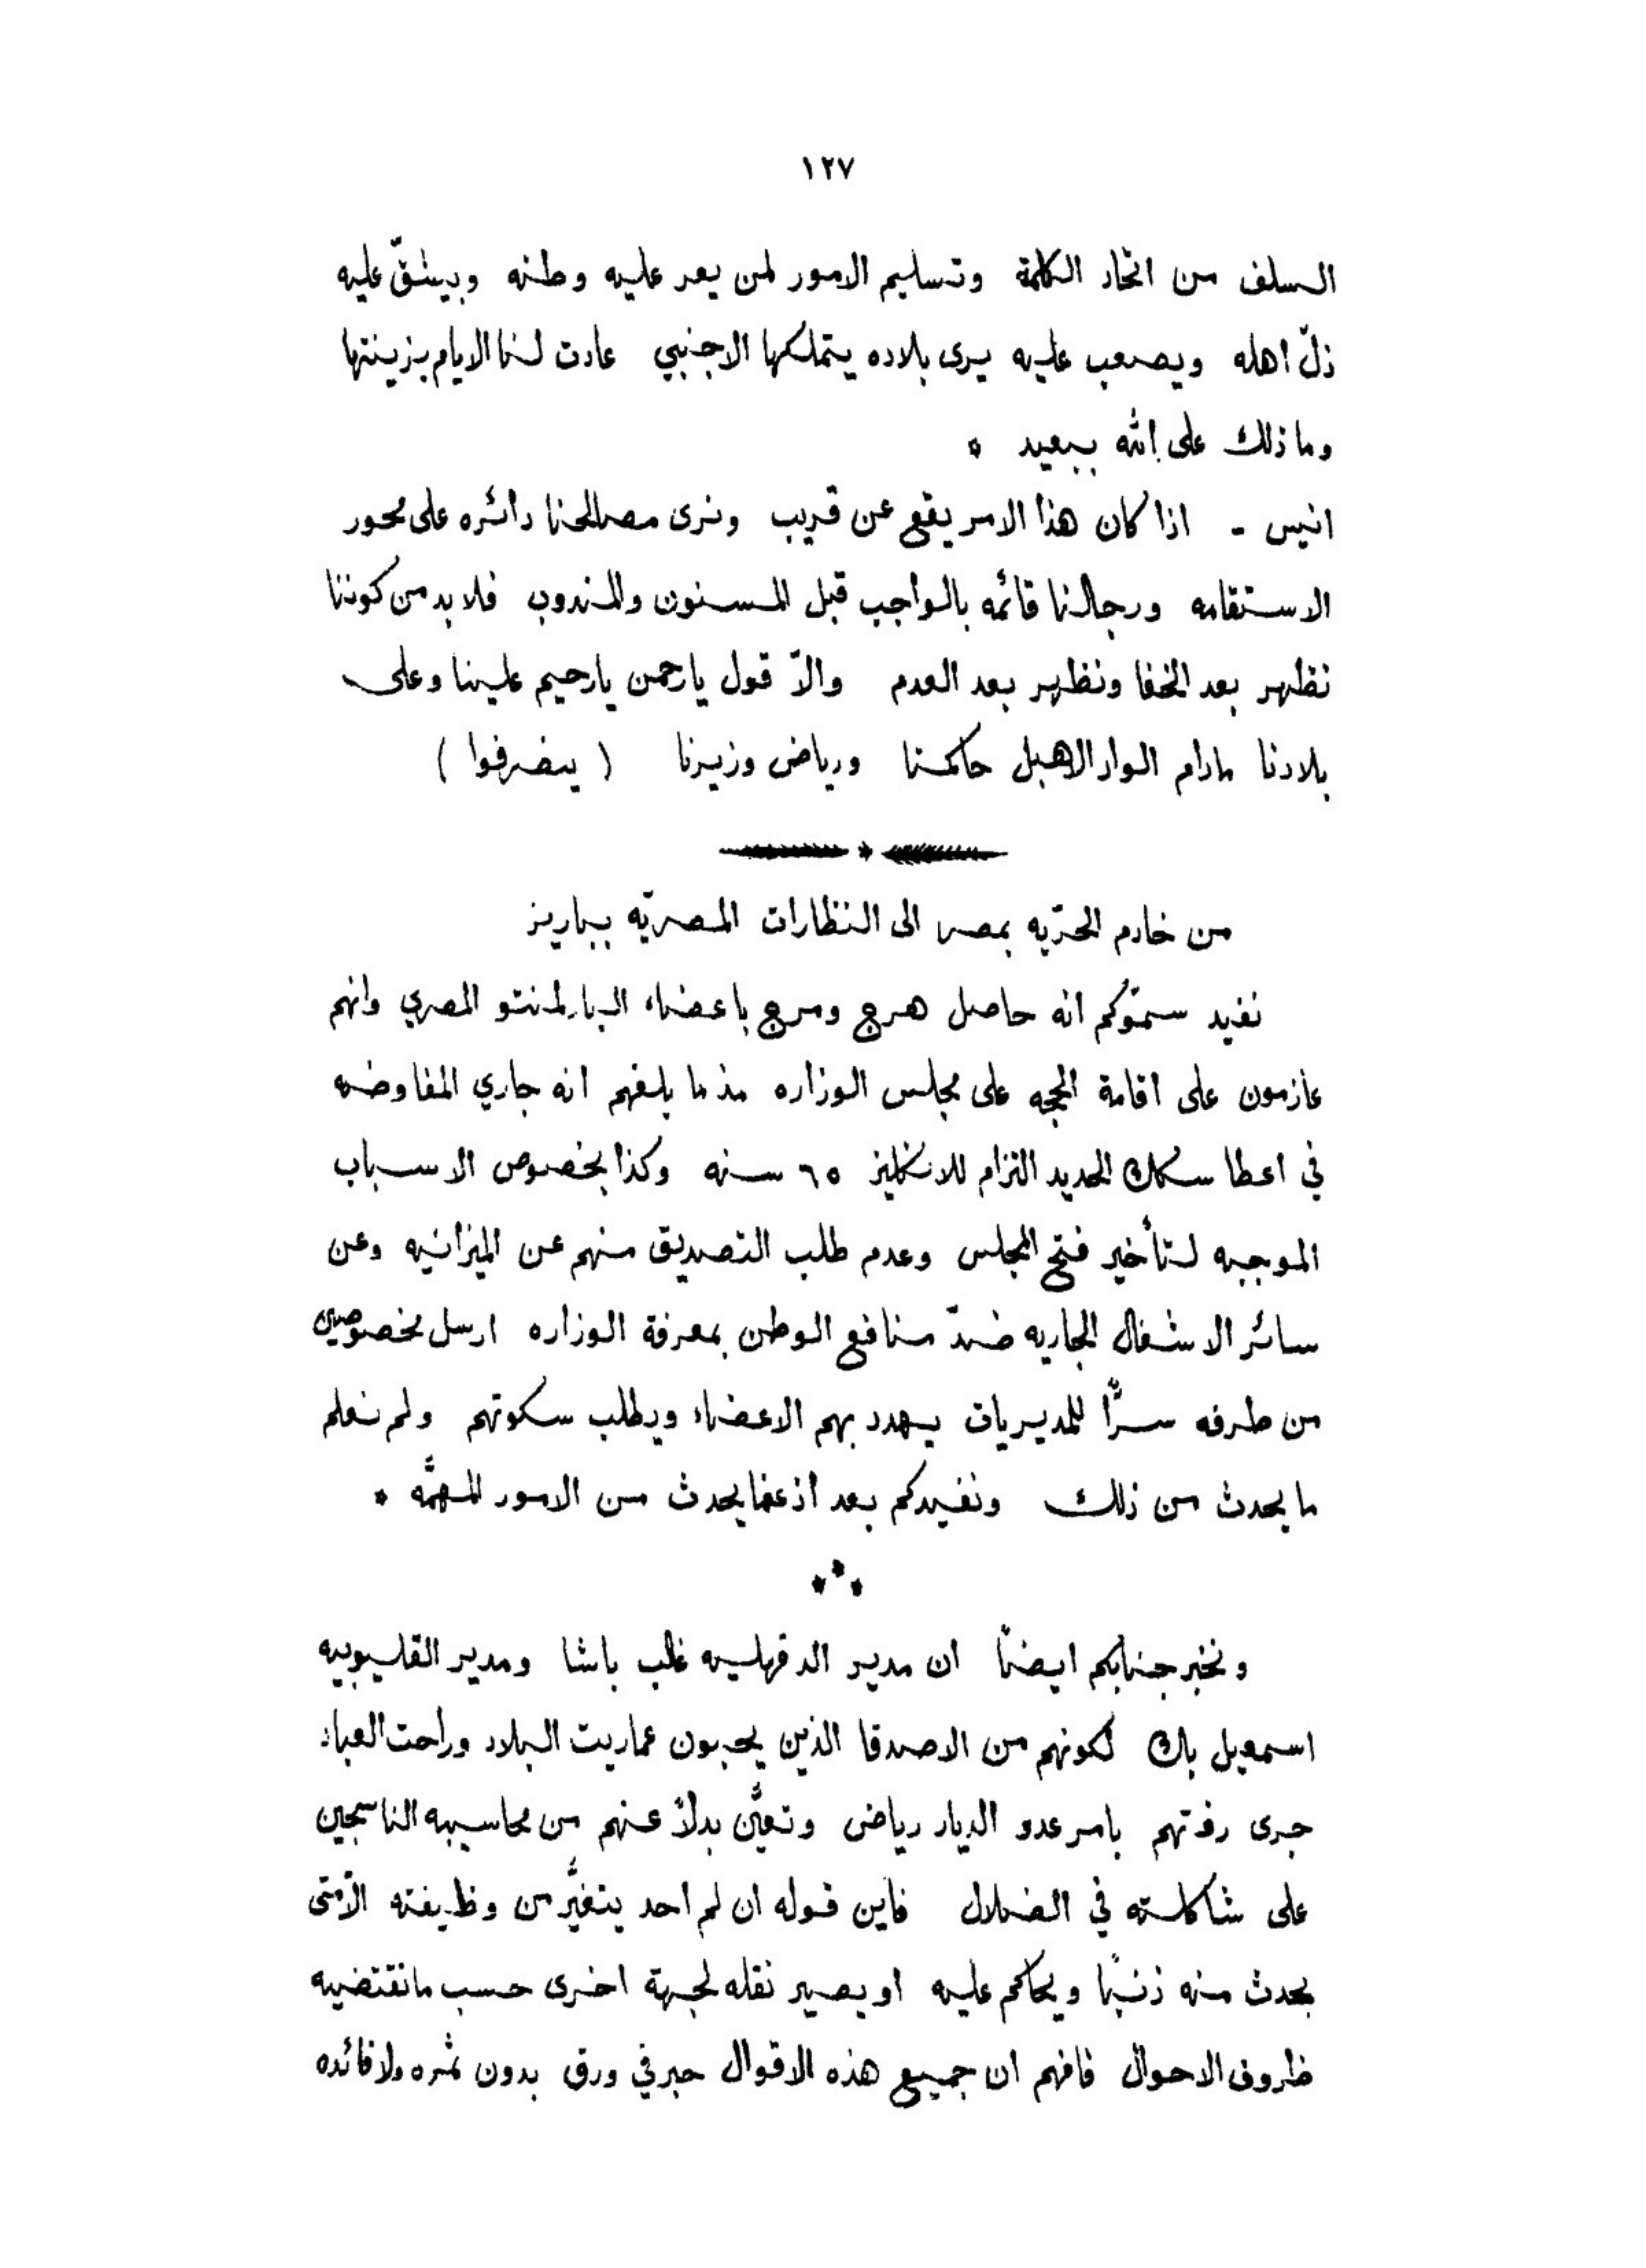 ١٢٧
السلف من اتحاد الكلمة وتسليم الامور لمن يعد عليه وطنه ويشقّ عليه
ذلّ اهله ويصعب عليه يرى بلاده يتملكها الاجنبي عادت لنا الايام بزينتها
وما ذلك على الله ببعيد *
انيس - اذا كان هذا الامر يقع عن قريب ونرى مصالحنا دائره على محور
الاستقامه ورجالنا قائمه بالواجب قبل المسنون والمندوب فلا بد من كوننا
نظهر بعد الخفا ونظهر بعد العدم والاّ قول يارحمن يارحيم علينا وعلى
بلادنا مادام الواد الاهبل حاكمنا ورياض وزيرنا ( ينصرفوا )
*
من خادم الحرّيه بمصر الى النظارات المصريّه بباريز
نفيد سموّكم انه حاصل هرج ومرج باعضاء البارلمنتو المصري وانهم
عازمون على اقامة الحجه على مجلس الوزاره مذ ما بلغهم انه جاري المفاوضه
في اعطا سكك الحديد التزام للانكليز ٦٥ سنه وكذا بخصوص الاسباب
الموجبه لتأخير فتح المجلس وعدم طلب التصديق منهم عن الميزانيه وعن
سائر الاشغال الجاريه ضدّ منافع الوطن بمعرفة الوزاره ارسل مخصوصين
من طرفه سرًّا للمديريات يهدد بهم الاعضاء ويطلب سكوتهم ولم نعلم
ما يحدث من ذلك ونفيدكم بعد اذ عما يحدث من الامور المهمّه *
***
ونخبر جنابكم ايضًا ان مدير الدقهليه غالب باشا ومدير القليوبيه
اسمعيل بك لكونهم من الاصدقا الذين يحبون عماريت البلاد وراحت العباد
جرى رفتهم بامر عدو الديار رياض وتعيّن بدلاً عنهم من محاسيبه الناسجين
على شاكلته في الضلال فاين قوله ان لم احد يتغيّر من وظيفته الاّ متى
يحدث منه ذنبًا ويحاكم عليه او يصير نقله لجهة اخرى حسب ما تقتضيه
ظروف الاحوال فافهم ان جميع هذه الاقوال حبر في ورق بدون ثمره ولا فائده